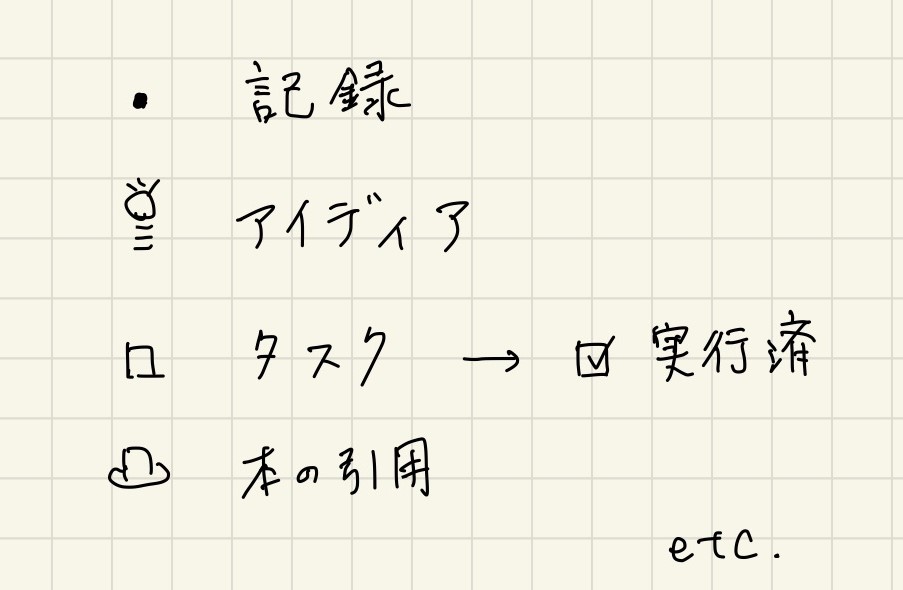 • 記録
💡 アイディア
□ タスク → ☑ 実行済
☁ 本の引用
etc.